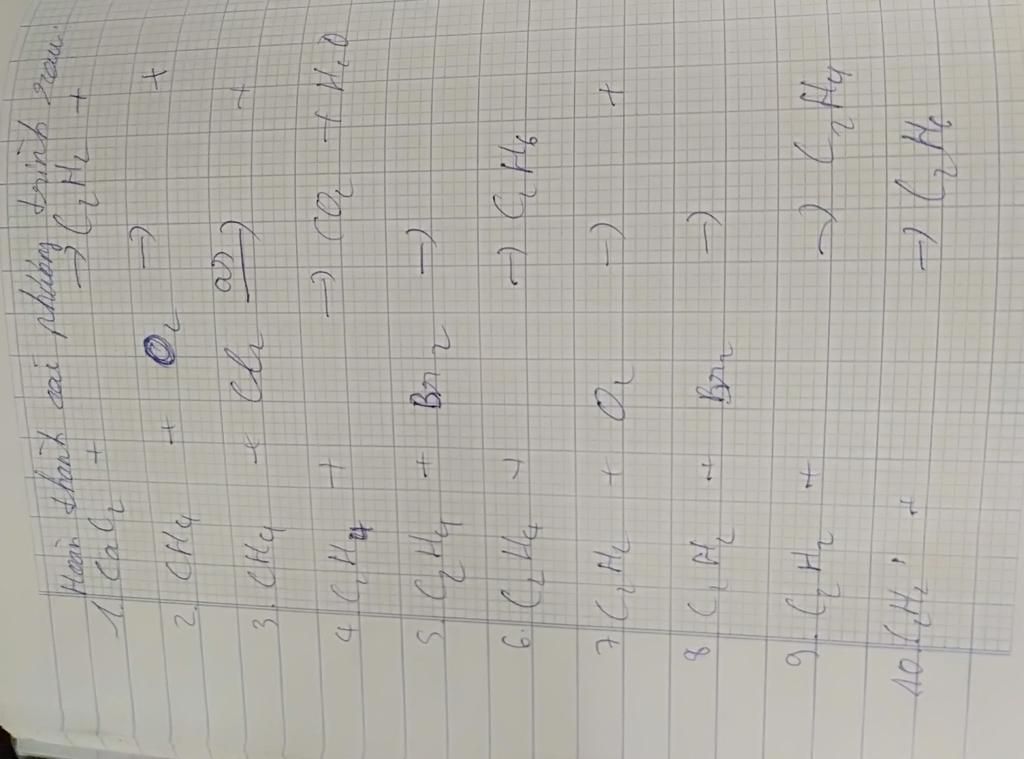 Hoàn thành các phương trình sau:
1. CaC₂ + → C₂H₂ +
2. CH₄ + O₂ → +
3. CH₄ + Cl₂ as→ +
4 C₂H₄ + → CO₂ + H₂O
5. C₂H₄ + Br₂ →
6. C₂H₄ + → C₂H₆
7 C₂H₂ + O₂ → +
8 C₂H₂ + Br₂ →
9. C₂H₂ + → C₂H₄
10. C₂H₂ + → C₂H₆